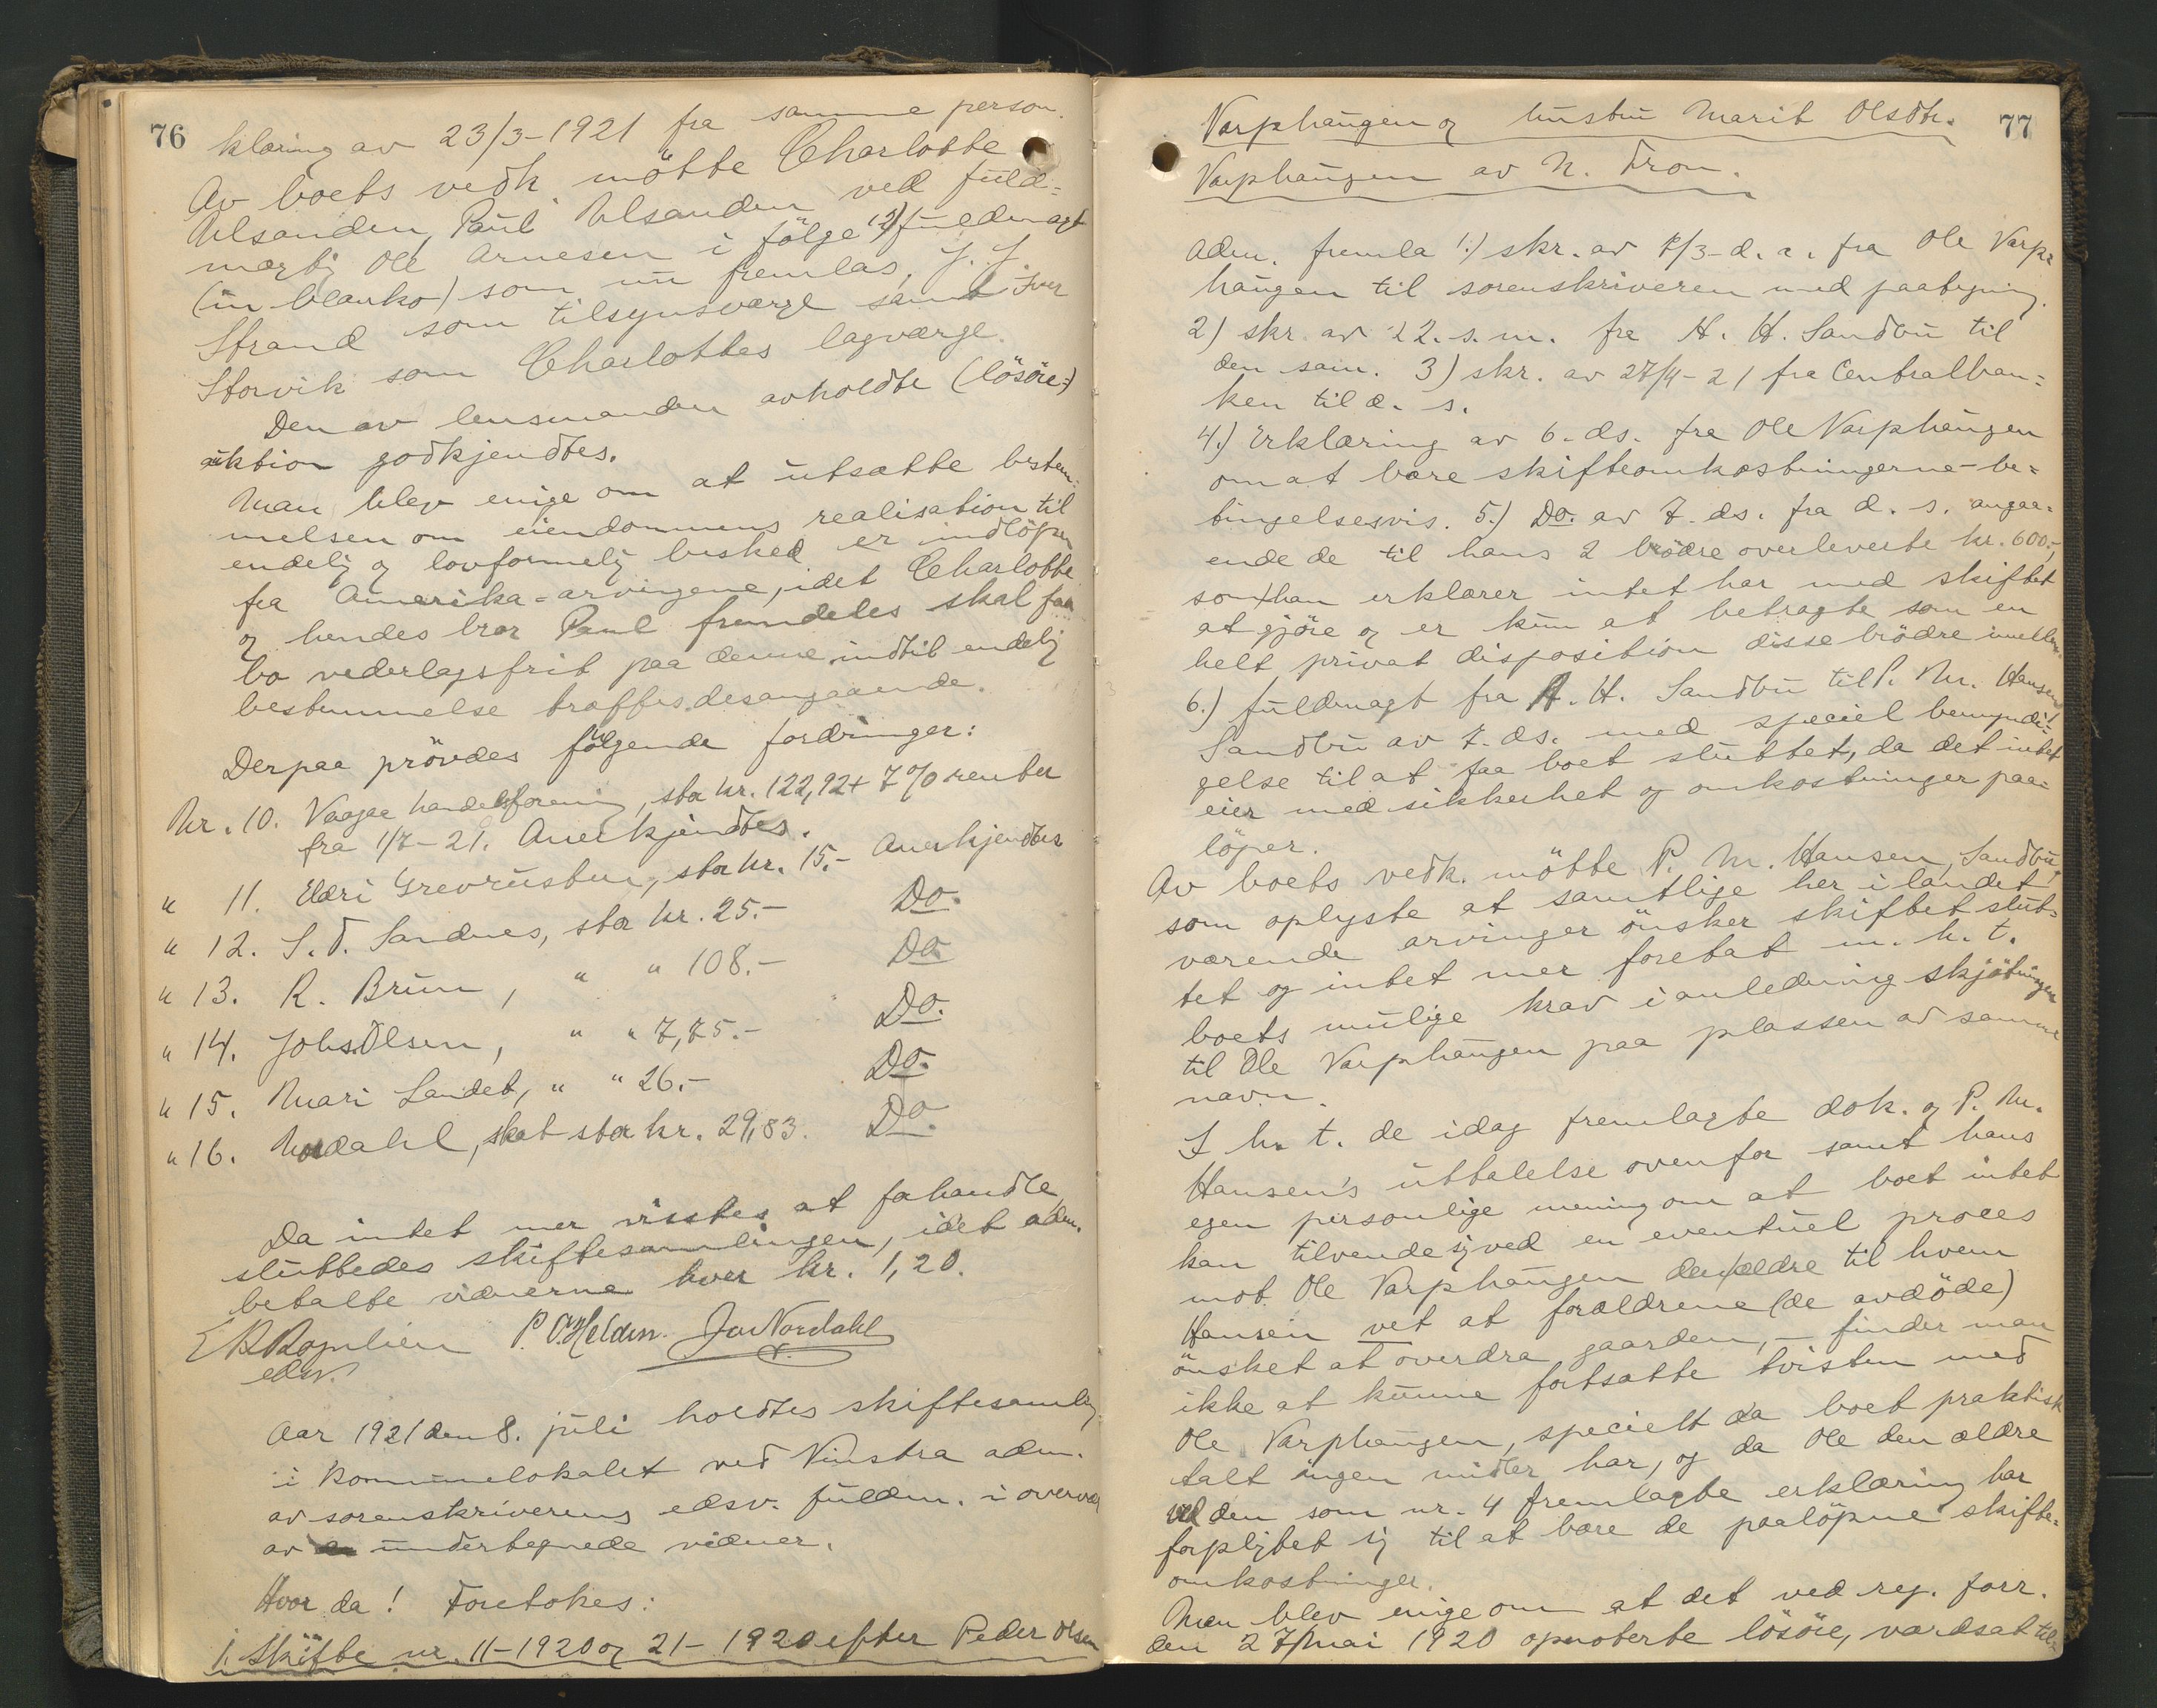 76
klæring av 23/3-1921 fra samme person.
Av boets vedk. mötte Charlotte
Ulsanden, Paul Ulsanden ved fuld=
mægtig Ole Arnesen i følge 12) fuldmagt
(in blanko) som nu fremlas, J. J.
Strand som tilsynsværge samt Iver
Storvik som Charlottes lagværge.
Den av lensmanden avholdte (lösöre=)
auktion godkjendtes.
Man blev enige om at utsætte bestem=
melsen om eiendommens realisation til
endelig og lovformelig besked er indlöpen
fra Amerika-arvingene, idet Charlotte
og hendes bror Paul fremdeles skal faa
bo vederlagsfrit paa denne indtil endelig
bestemmelse træffes desangaaende.
Derpaa prövdes fölgende fordringer:
Nr. 10. Vaagaa handelsforening, stor kr. 122,92 + 7% renter
fra 1/7-21. Anerkjendtes.
" 11. Eldri Grevrusten, stor kr. 15.- Anerkjendtes
" 12. S. T. Sandnes, stor kr. 25.- Do.
" 13. R. Brun, " " 108.- Do.
" 14. Johs. Olsen, " " 7,75.- Do.
" 15. Mari Landet, " " 26.- Do.
" 16. Nordahl, skat stor kr. 29,83. Do.
Da intet mer visstes at forhandle
sluttedes skiftesamlingen, idet adm.
betalte vidnerne hver kr. 1,20.
P. O. Helden. Jon Nordahl
edsv.
Aar 1921 den 8. juli holdtes skiftesamling
i kommunelokalet ved Vinstra adm.
av sorenskriverens edsv. fuldm. i overvær
av undertegnede vidner.
Hvor da! Foretokes:
1. Skifte nr. 11-1920 og 21-1920 efter Peder Olsen
77
Varphaugen og hustru Marit Olsdtr.
Varphaugen av N. Fron.
Adm. fremla 1.) skr. av 8/3-d. a. fra Ole Varp=
haugen til sorenskriveren med paategning.
2) skr. av 22. s. m. fra H. H. Sandbu til
den sam. 3) skr. av 27/4-21 fra Centralban=
ken til d. s.
4.) Erklæring av 6. ds. fra Ole Varphaugen
om at bære skifteomkostningerne - be=
tingelsesvis. 5.) Do. av 7. ds. fra d. s. angaa=
ende de til hans 2 brödre overleverte kr. 600.-,
som han erklærer intet har med skiftet
at gjöre og er kun at betragte som en
helt privat disposition disse brödre imellem.
6.) fuldmagt fra H. H. Sandbu til P. M. Hansen
Sandbu av 7. ds. med speciel bemyndi=
gelse til at faa boet sluttet, da det intet
eier med sikkerhet og omkostninger paa=
löper.
Av boets vedk. mötte P. M. Hansen, Sandbu,
som oplyste at samtlige her i landet
værende arvinger önsker skiftet slut=
tet og intet mer foretat m. h. t.
boets mulige krav i anledning skjötningen
til Ole Varphaugen paa plassen av samme
navn.
I h. t. de idag fremlagte dok. og P. M.
Hansen's uttalelse ovenfor samt hans
egen personlige mening om at boet intet
kan tilvende sig ved en eventuel proces
mot Ole Varphaugen den ældre til hvem
Hansen vet at forældrene (de avdöde)
önsket at overdra gaarden, - finder man
ikke at kunne fortsætte tvisten med
Ole Varphaugen, specielt da boet praktisk
talt ingen midler har, og da Ole den ældre
ved den som nr. 4 fremlagte erklæring har
forpligtet sig til at bære de paalöpne skifte=
omkostninger.
Man blev enige om at det ved reg. forr.
den 27 mai 1920 opnoterte lösöre, værdsat til